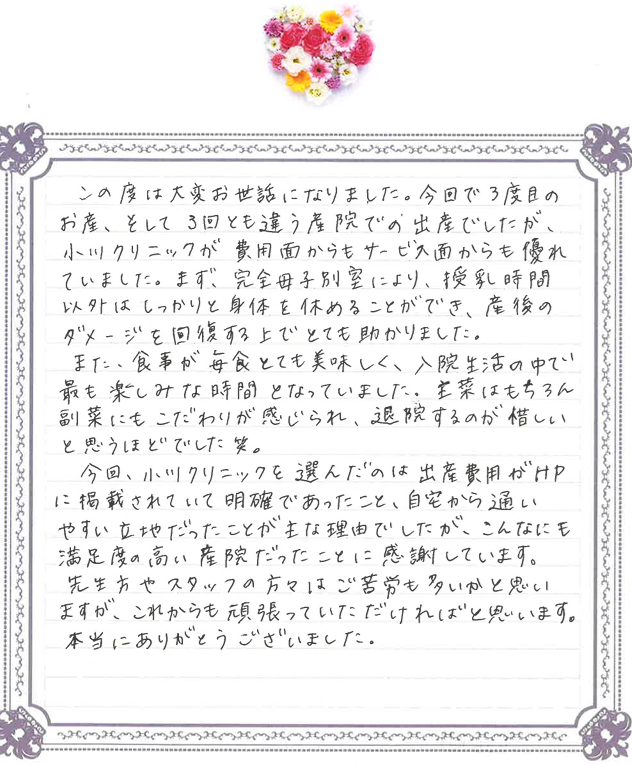 この度は大変お世話になりました。今回で3度目の
お産、そして3回とも違う産院での出産でしたが、
小川クリニックが費用面からもサービス面からも優れ
ていました。まず、完全母子別室により、授乳時間
以外はしっかりと身体を休めることができ、産後の
ダメージを回復する上でとても助かりました。
また、食事が毎食とても美味しく、入院生活の中で
最も楽しみな時間となっていました。主菜はもちろん
副菜にもこだわりが感じられ、退院するのが惜しい
と思うほどでした笑。
今回、小川クリニックを選んだのは出産費用がHP
に掲載されていて明確であったこと、自宅から通い
やすい立地だったことが主な理由でしたが、こんなにも
満足度の高い産院だったことに感謝しています。
先生方やスタッフの方々はご苦労も多いかと思い
ますが、これからも頑張っていただければと思います。
本当にありがとうございました。